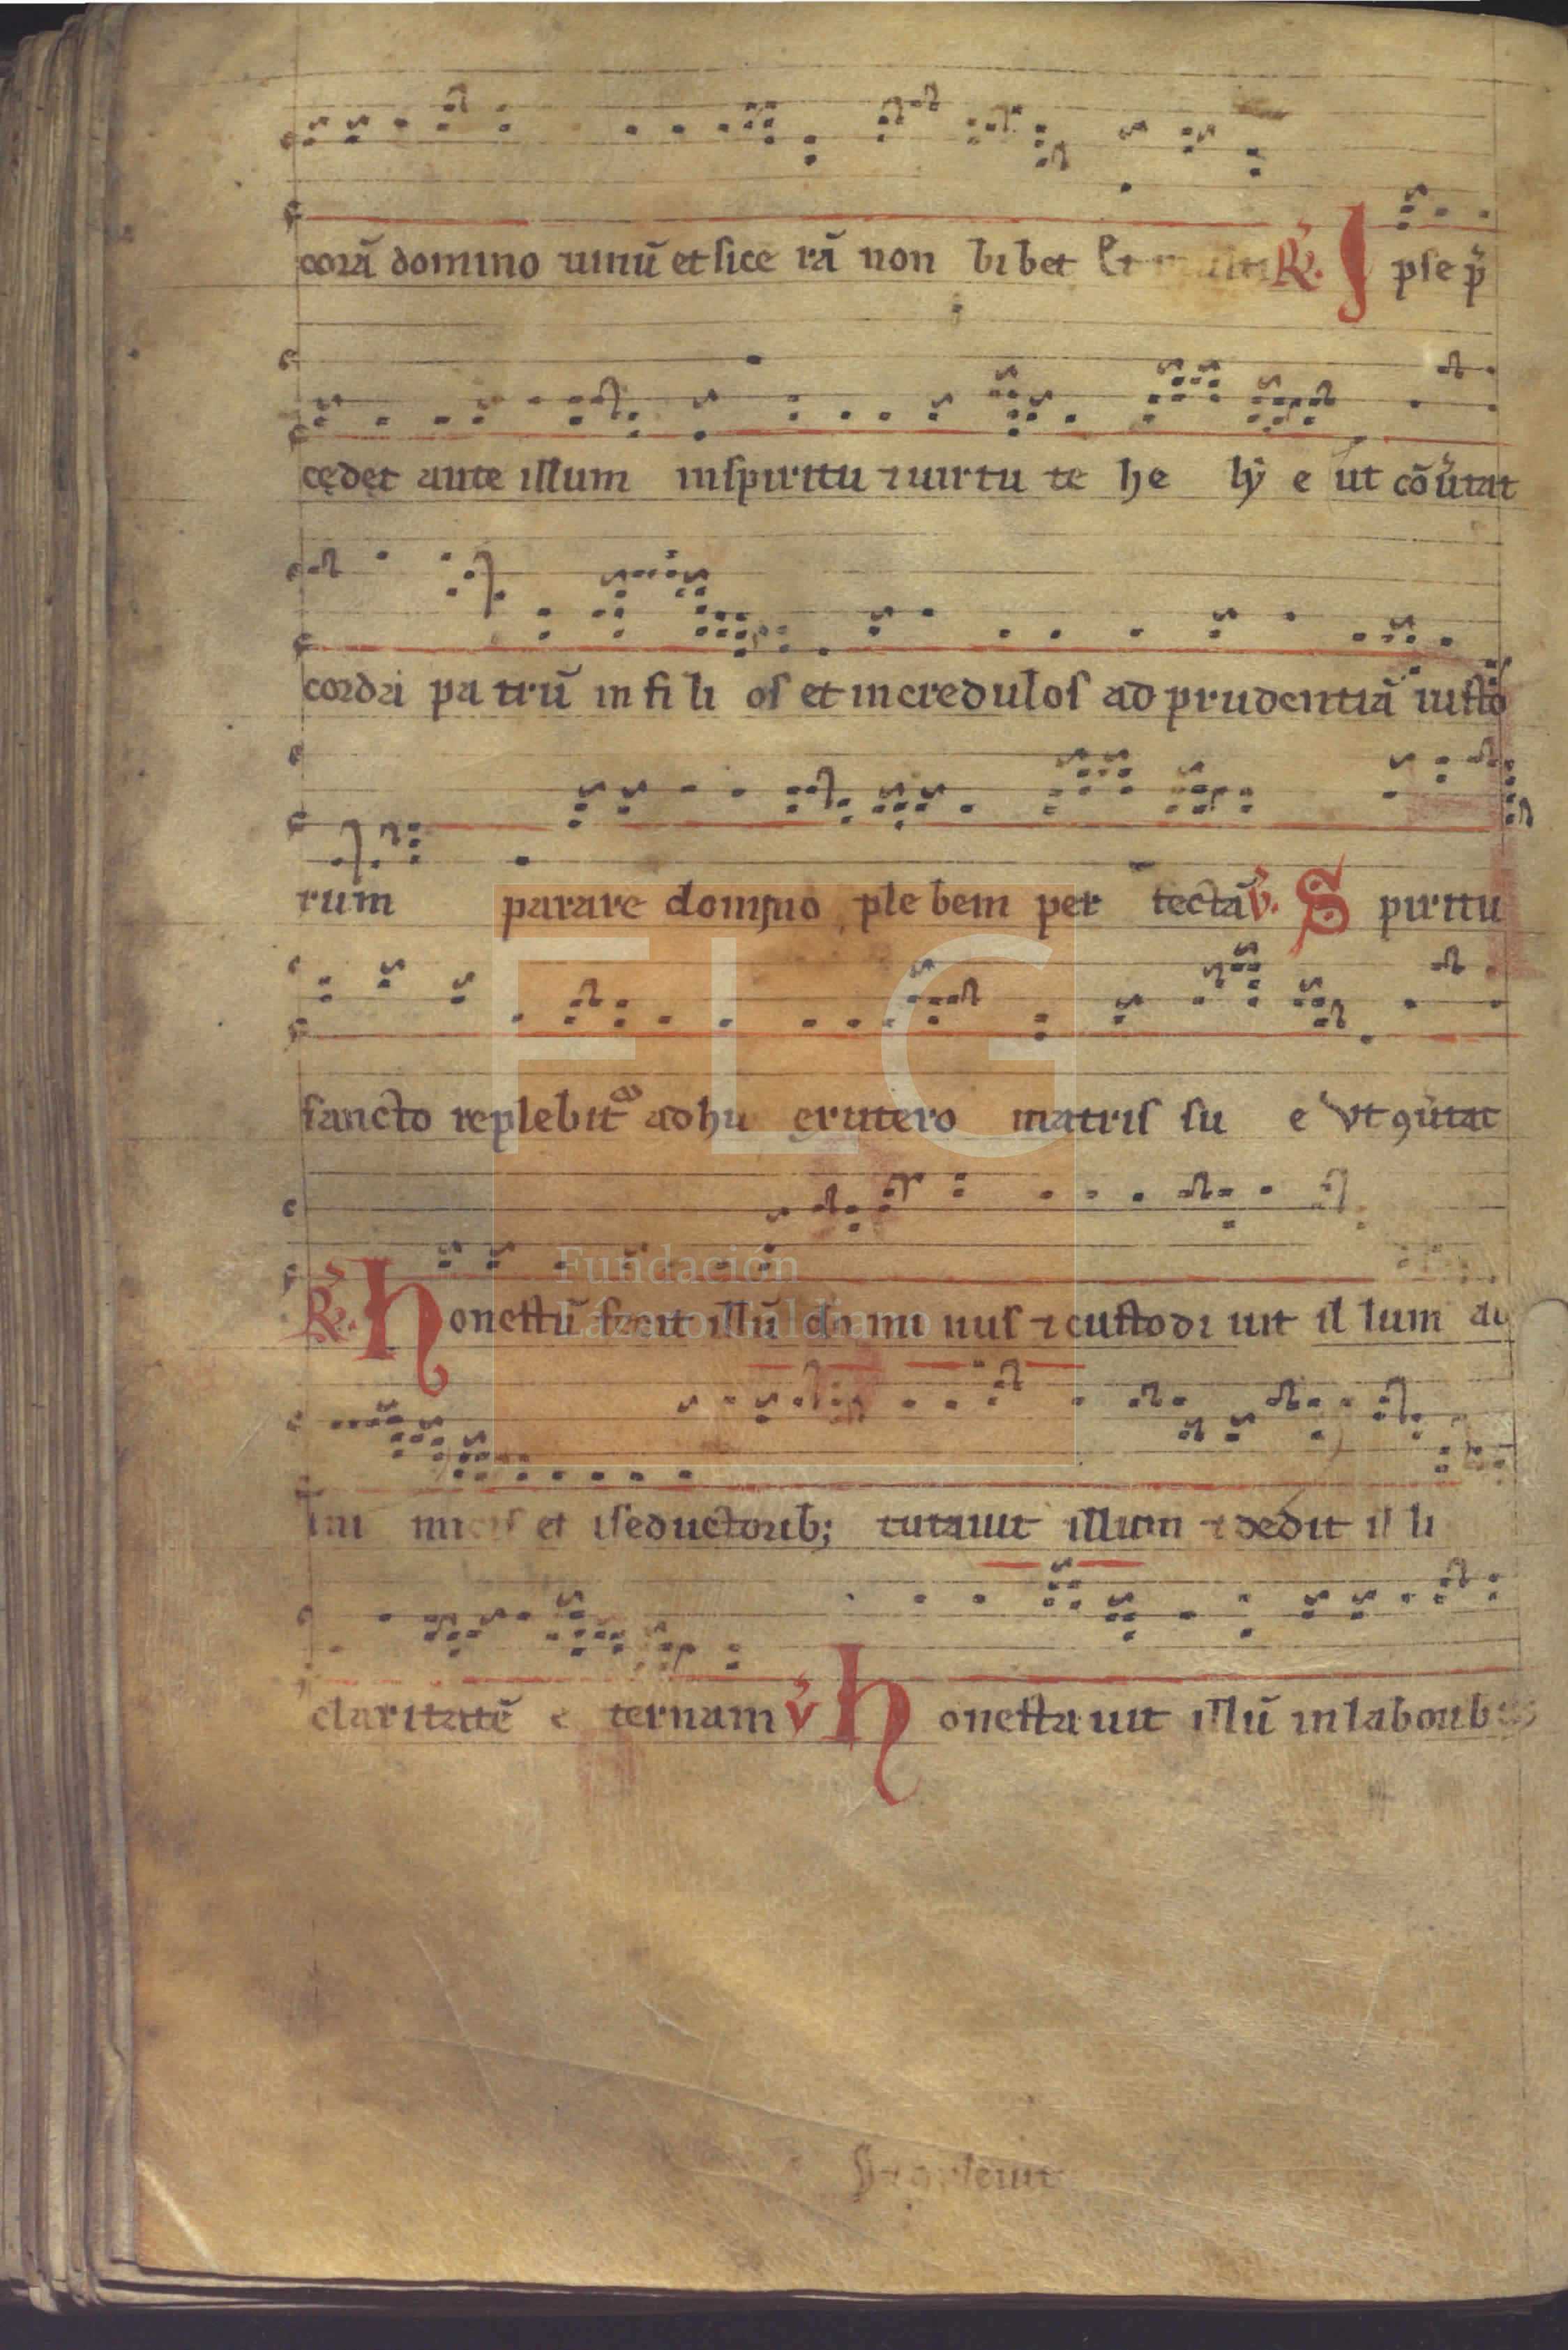 corā domino uinū et sice rā non bi bet Et multi R̃. I pse p̄
cędet ante illum in spiritu ⁊ uirtu te he lẏ e ut cōũtat
corda pa trū in fi li os et incredulos ad prudentiā iusto
rum parare domino ple bem per tectā ṽ. S piritu
sancto replebit᷑ adhu ex utero matris su e Vt ꝯũtat
R̃. H onestū fecit illū do mi nus ⁊ custodi uit il lum ab
ini micis et a seductorib; tutauit illum ⁊ dedit il li
claritatē e ternam ṽ H onesta uit illū in laborib
FLG
Fundación
Lázaro Galdiano